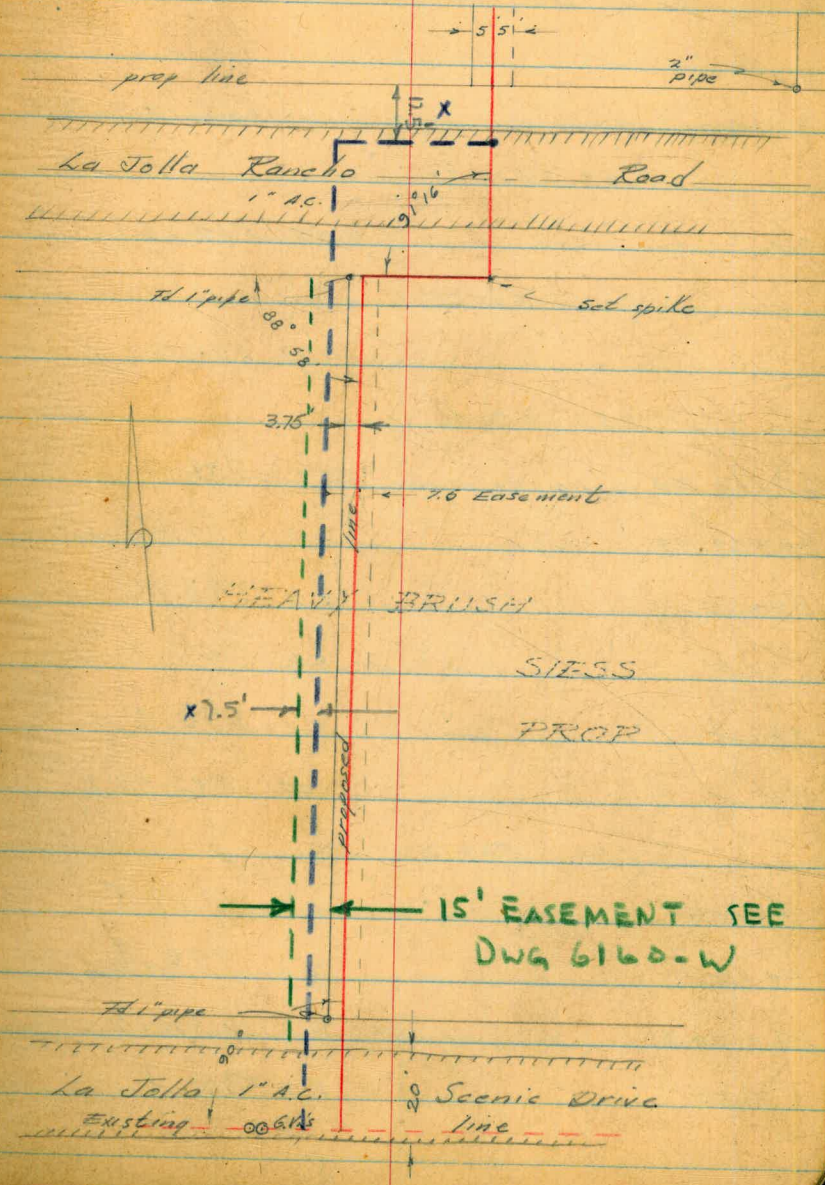 5' 5'
prop line
2"
pipe
12.5'
x
La Jolla Rancho Road
1" A.C.
91°16'
Fd 1" pipe
set spike
88° 58'
3.75'
7.5 Easement
line
HEAVY BRUSH
SIESS
x 7.5'
PROP
proposed
15' EASEMENT SEE
DWG 6160-W
Fd 1" pipe
90°
La Jolla 1" A.C. Scenic Drive
20'
Existing G.V.'s line